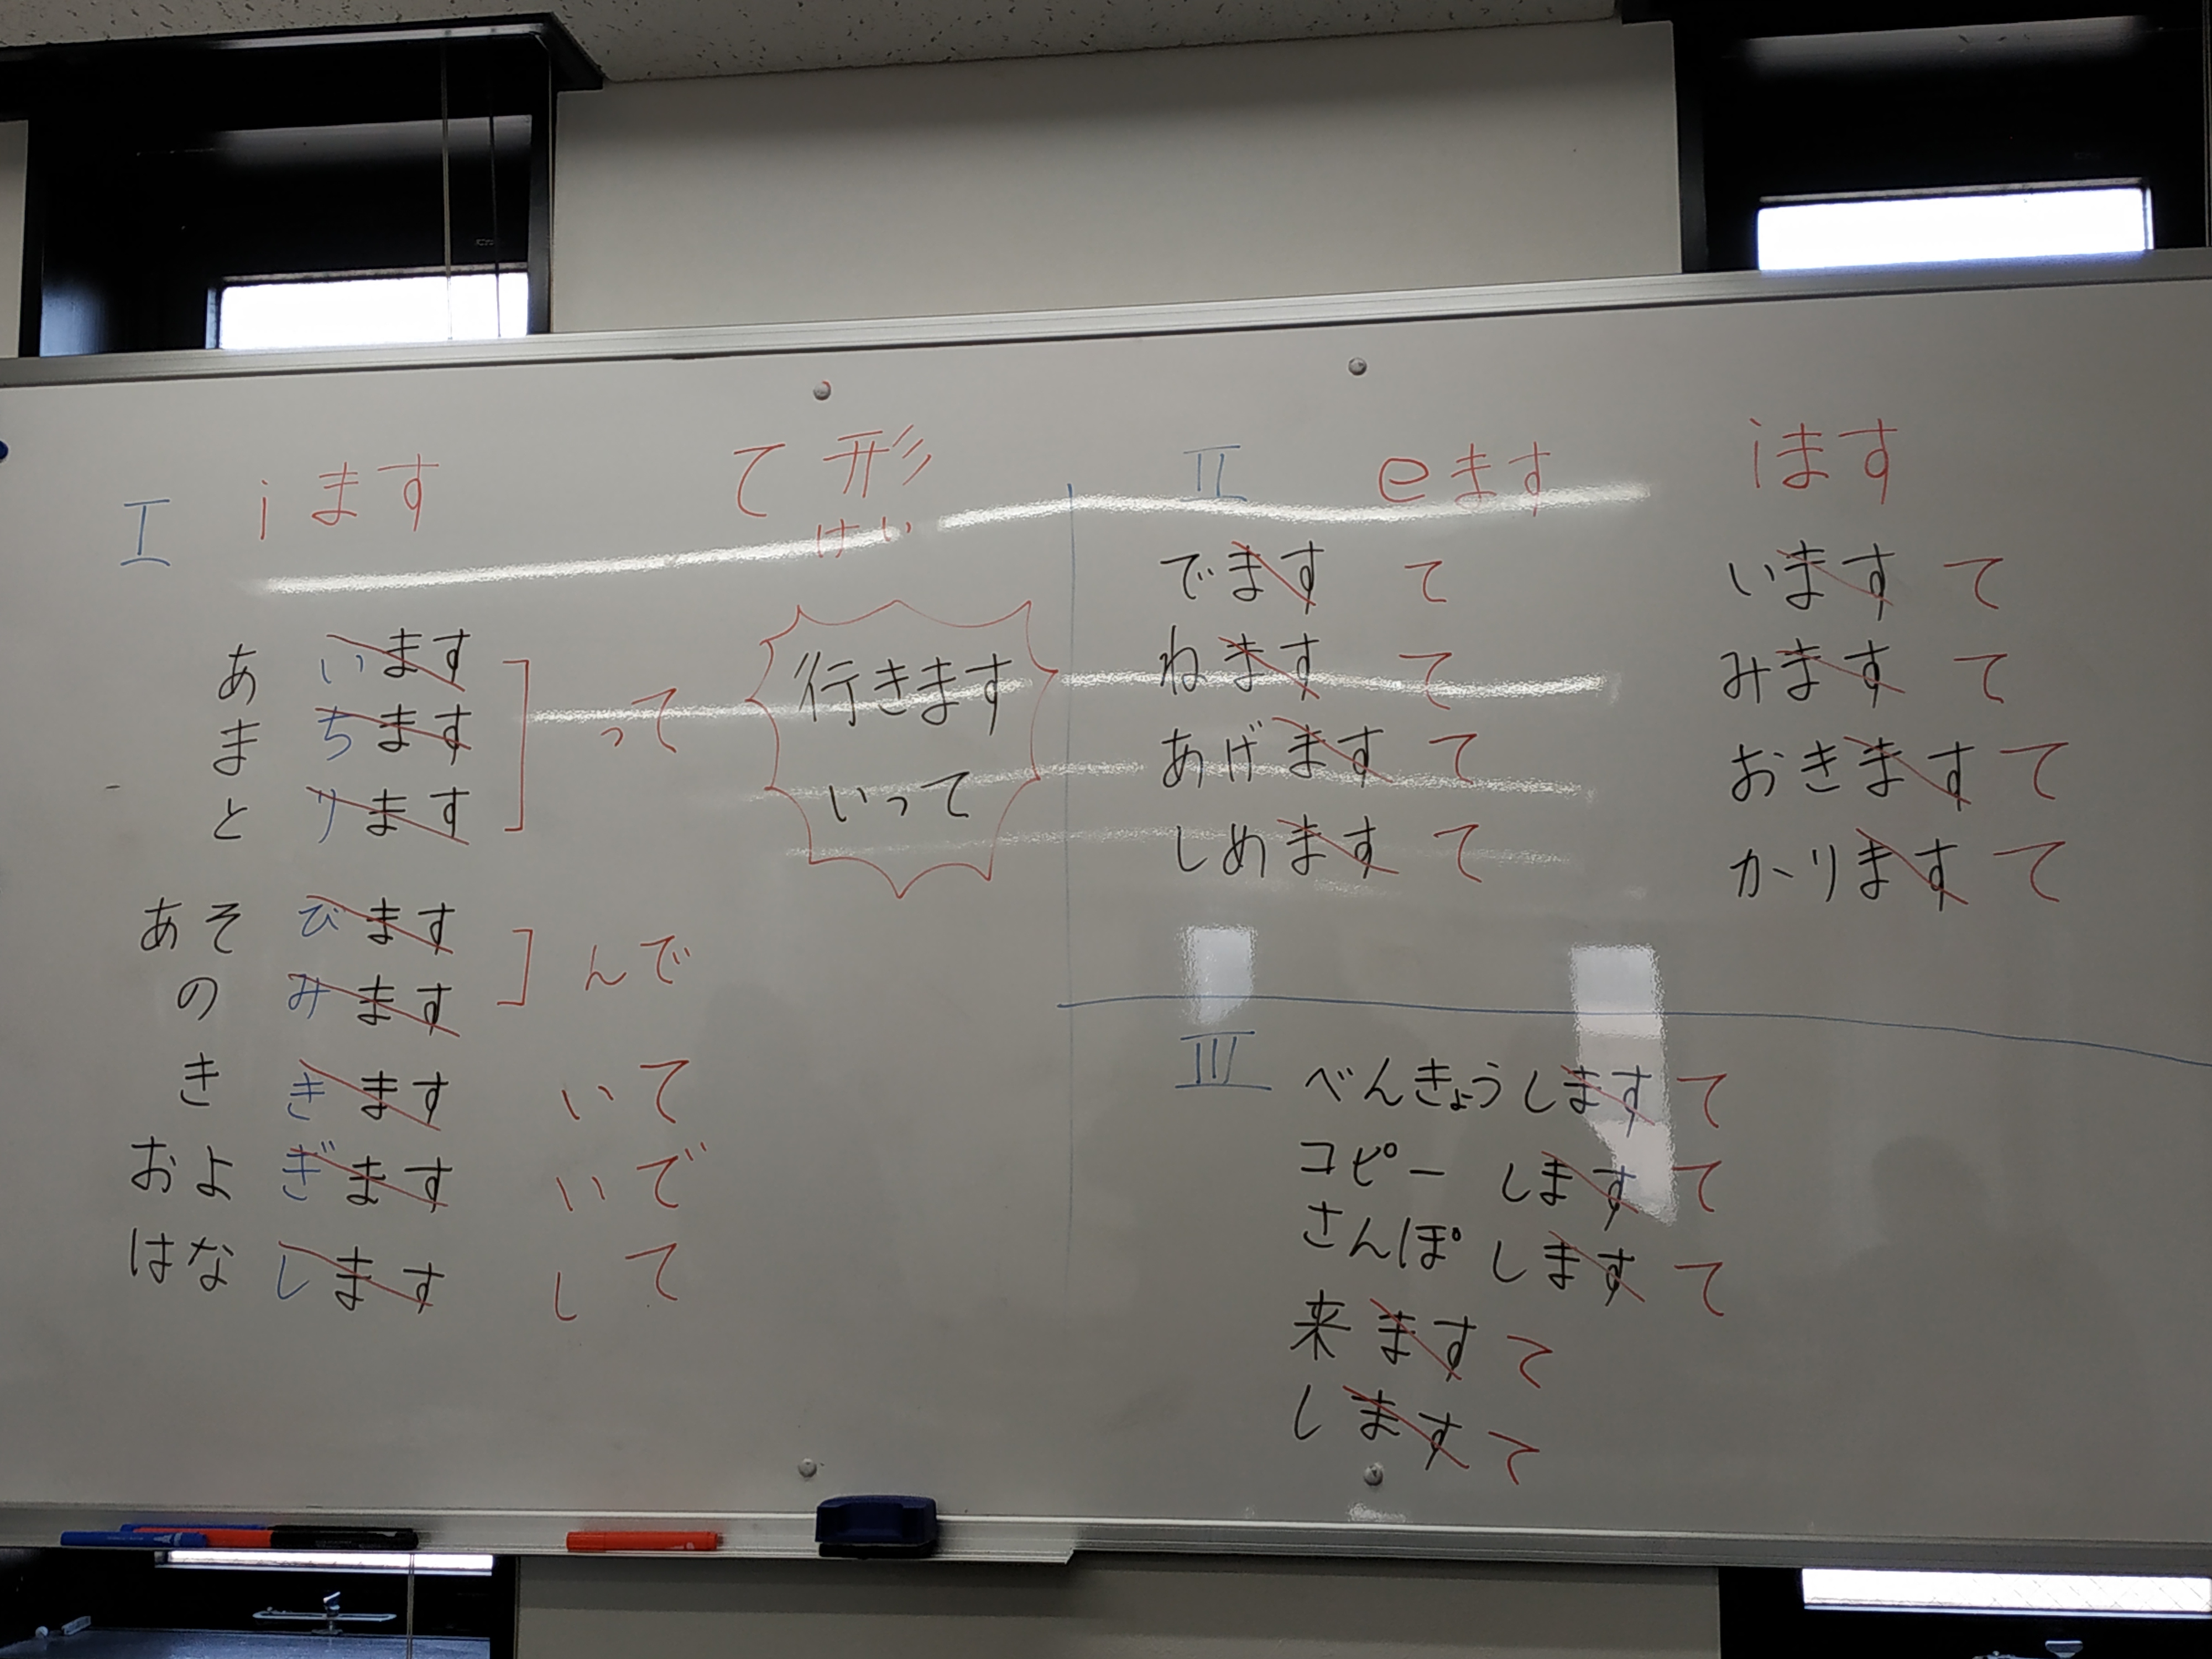 I iます て形
けい
あいます
まちます って
とります
行きます
いって
あそびます
のみます んで
ききます いて
およぎます いで
はなします して
II eます iます
でます て います て
ねます て みます て
あげます て おきます て
しめます て かります て
III べんきょうします て
コピーします て
さんぽします て
来ます て
します て